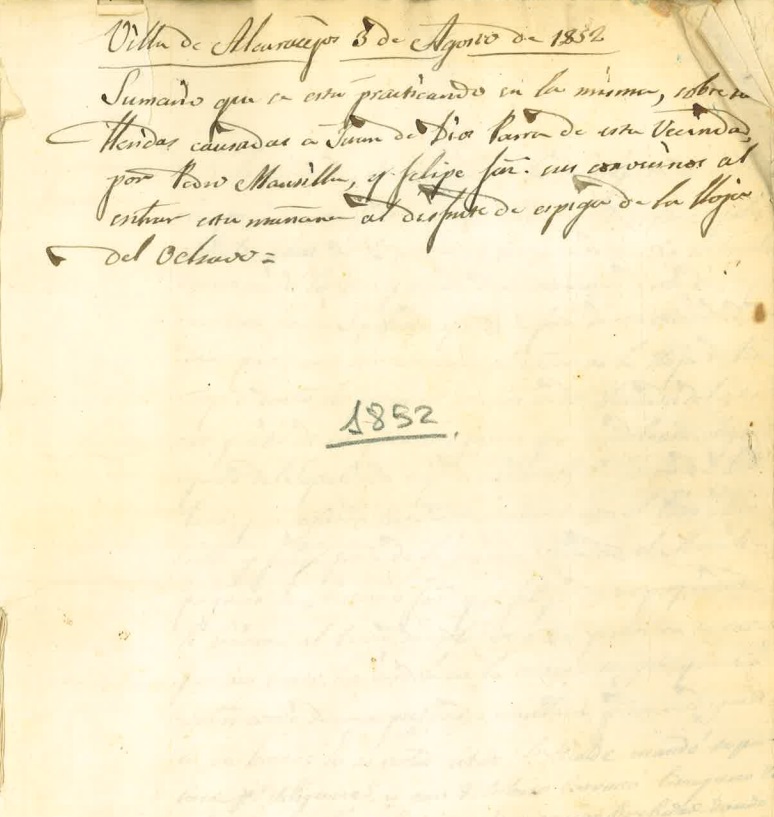 Villa de Alcaracejos 3 de Agosto de 1852
Sumario que se esta practicando en la misma, sobre
Heridas causadas a Juan de Dios Parra de esta Vecindad,
por Pedro Mansilla, y Felipe sus convecinos al
entrar esta mañana al disfrute de espiga de la Hoja
del Ochavo =
1852